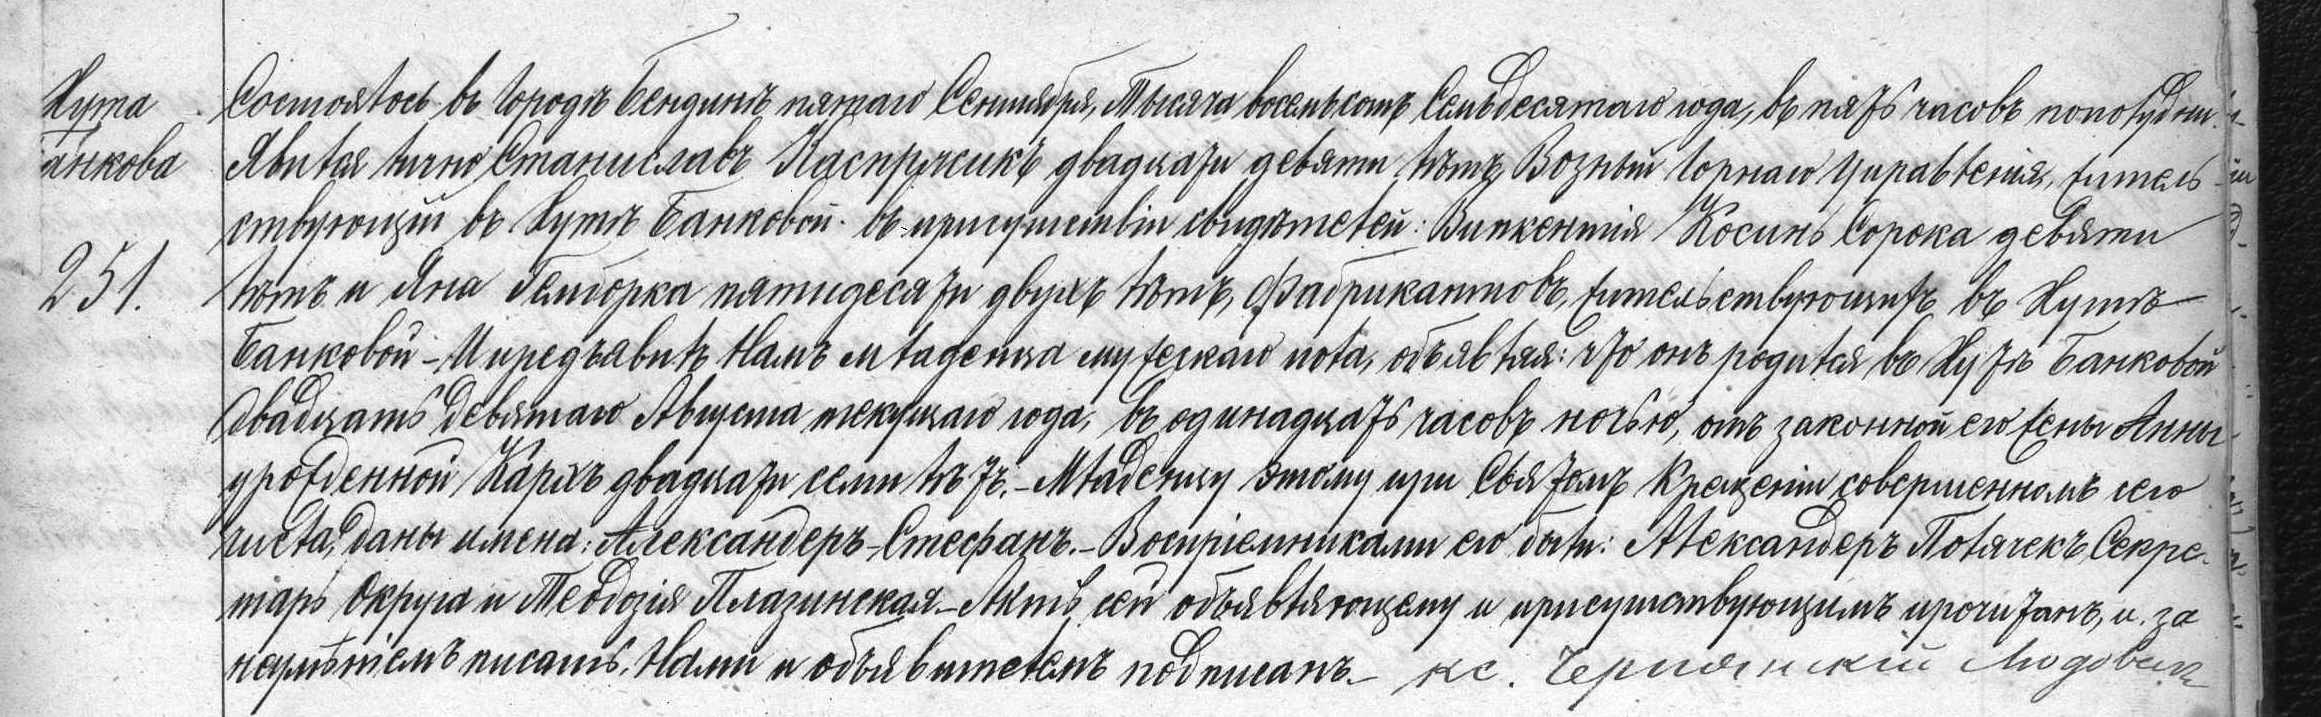 Хута
Банкова
251.
Состоялось въ городѣ Бендинѣ пятаго Сентября, Тысяча восемьсотъ Семьдесятаго года, въ пять часовъ пополудни.
Явился лично Станиславъ Каспрусикъ двадцати девяти лѣтъ, Возный Горнаго Управленія, житель-
ствующій въ Хутѣ Банковой. въ присутствіи свидѣтелей: Винкентія Косинь Сорока девяти
лѣтъ и Яна Гемборка пятидесяти двухъ лѣтъ, Фабрикантовъ, жительствующихъ въ Хутѣ
Банковой – И предъявилъ Намъ младенца мужескаго пола, объявляя: что онъ родился въ Хутѣ Банковой
двадцать девятаго Августа текущаго года, въ одинадцать часовъ ночью, отъ законной его жены Анны
урожденной Кархъ двадцати семи лѣтъ. – Младенцу этому при Святомъ Крещеніи совершенномъ сего
числа, даны имена: Александеръ-Стефанъ. – Воспріемниками его были: Александеръ Полячекъ Секре-
таръ Округа и Теодозія Плазинская – Актъ сей объявляющему и присутствующимъ прочитанъ, и за
неумѣніемъ писать, Нами и объявителемъ подписанъ. – кс.